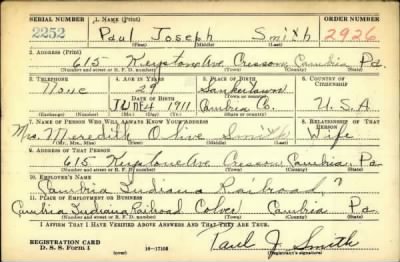 SERIAL NUMBER 1. NAME (Print) ORDER NUMBER
2252 Paul Joseph Smith 2926
(First) (Middle) (Last)
2. ADDRESS (Print)
615 Keystone Ave. Cresson Cambria Pa.
(Number and street or R. F. D. number) (Town) (County) (State)
3. TELEPHONE 4. AGE IN YEARS 5. PLACE OF BIRTH 6. COUNTRY OF CITIZENSHIP
None 29 Sankertown
DATE OF BIRTH (Town or county)
JUNE 4 1911 Cambria Co. U.S.A
(Mo.) (Day) (Yr.) (State or country)
7. NAME OF PERSON WHO WILL ALWAYS KNOW YOUR ADDRESS 8. RELATIONSHIP OF THAT PERSON
Mrs. Meredith Olive Smith Wife
(Mr., Mrs., Miss) (First) (Middle) (Last)
9. ADDRESS OF THAT PERSON
615 Keystone Ave. Cresson Cambria Pa
(Number and street or R. F. D. number) (Town) (County) (State)
10. EMPLOYER'S NAME
Cambria Indiana Railroad
11. PLACE OF EMPLOYMENT OR BUSINESS
Cambria Indiana Railroad Colver Cambria Pa.
(Number and street or R. F. D. number) (Town) (County) (State)
I AFFIRM THAT I HAVE VERIFIED ABOVE ANSWERS AND THAT THEY ARE TRUE.
REGISTRATION CARD
D. S. S. Form 1 (over) 16—17105 Paul J. Smith
(Registrant's signature)